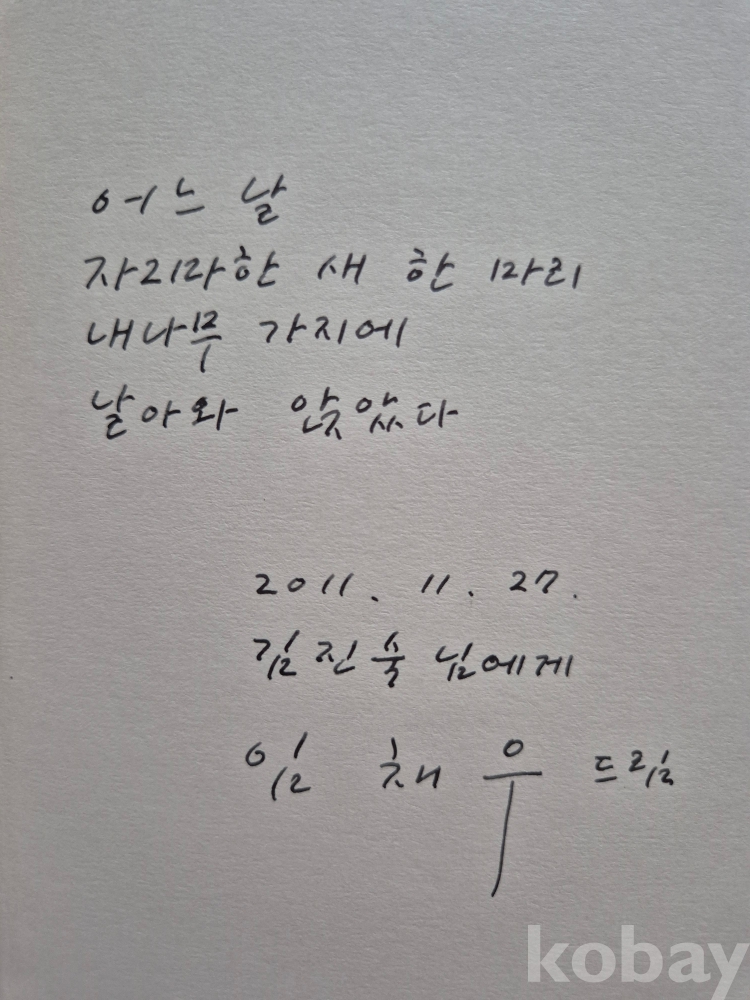 어느 날
자리라한 새 한 마리
내나무 가지에
날아와 앉았다
2011. 11. 27.
김진숙 님에게
임 채 우 드림
kobay